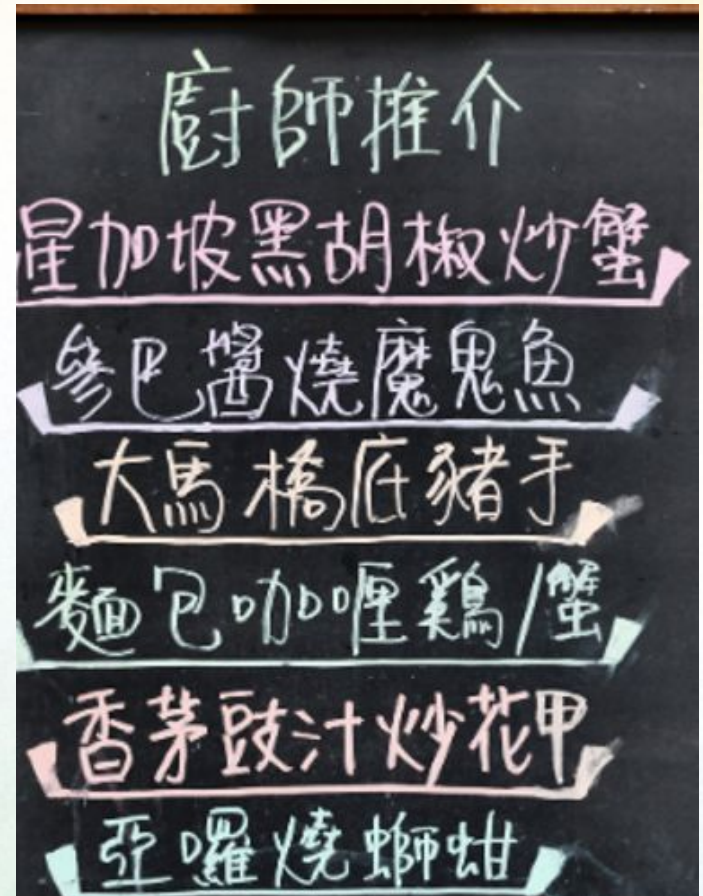 廚師推介
星加坡黑胡椒炒蟹
參巴醬燒魔鬼魚
大馬橋底豬手
麵包咖喱鷄/蟹
香茅豉汁炒花甲
亞囉燒螄蚶